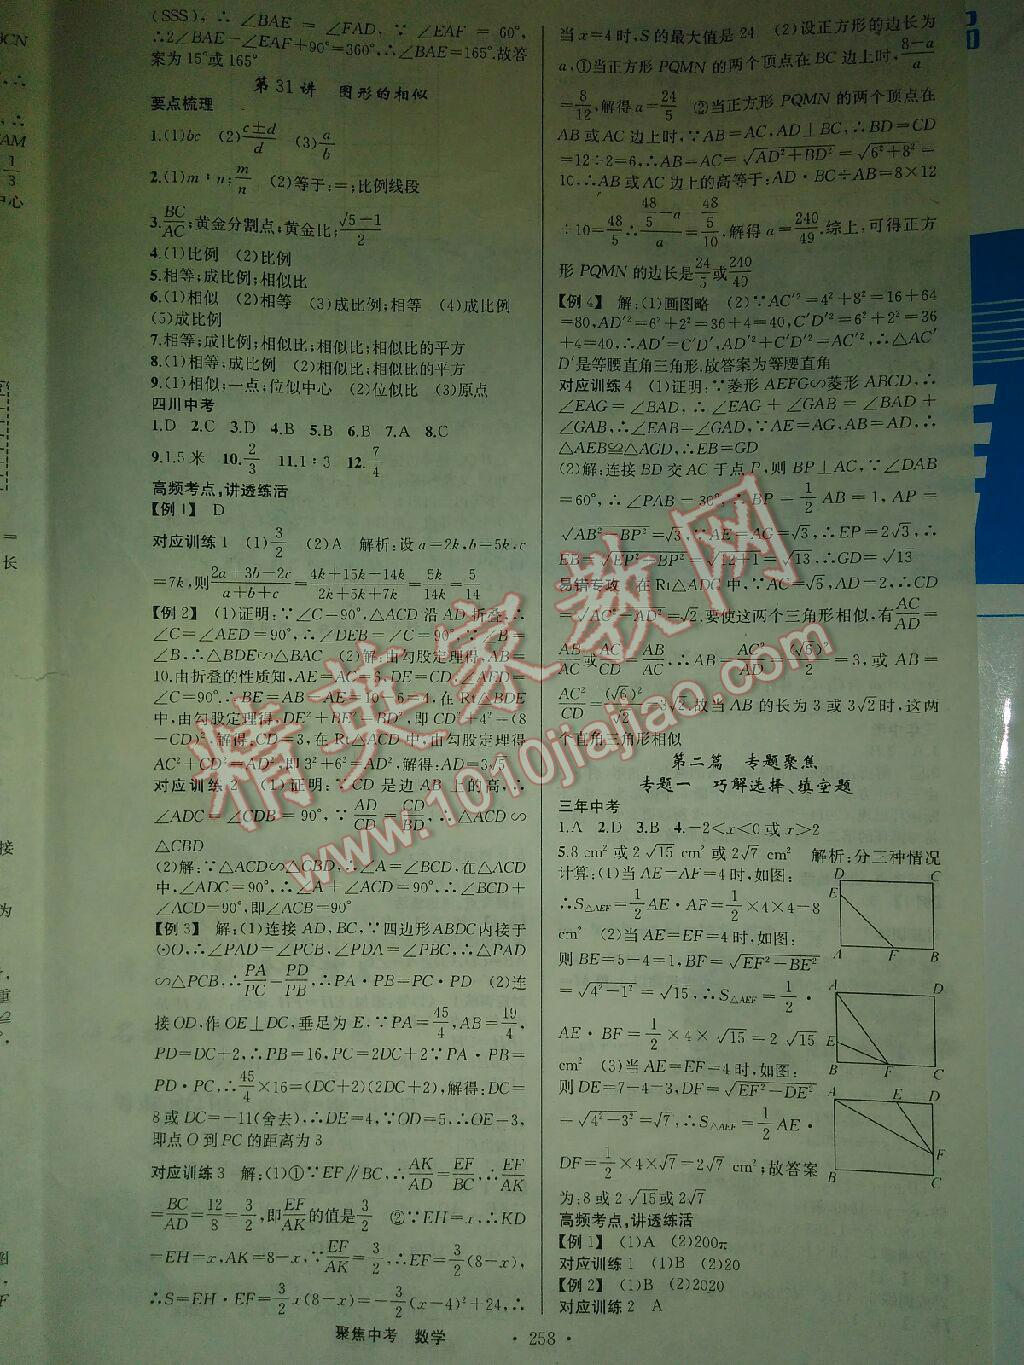 (SSS),∴∠BAE=∠FAD,∵∠EAF=60°,
∴2∠BAE-∠EAF+90°=360°,∴∠BAE=165°.故答
案为15°或165°
第31讲 图形的相似
要点梳理
1.(1)bc (2)(c±d)/d (3)a/b
2.(1)m:n;m/n (2)等于;=;比例线段
3.BC/AC;黄金分割点;黄金比;(√5-1)/2
4.(1)比例 (2)比例
5.相等;成比例;相似比
6.(1)相似 (2)相等 (3)成比例;相等 (4)成比例
(5)成比例
7.相等;成比例;相似比;相似比;相似比的平方
8.(1)相等;成比例 (2)相似比;相似比的平方
9.(1)相似;一点;位似中心 (2)位似比 (3)原点
四川中考
1.D 2.C 3.D 4.B 5.B 6.B 7.A 8.C
9.1.5米 10.2/3 11.1:3 12.7/4
高频考点,讲透练活
【例1】 D
对应训练1 (1)3/2 (2)A 解析:设a=2k,b=5k,c
=7k,则(2a+3b-2c)/(a+b+c)=(4k+15k-14k)/(2k+5k+7k)=5k/14k=5/14
【例2】 (1)证明:∵∠C=90°,△ACD沿AD折叠,∴
∠C=∠AED=90°,∴∠DEB=∠C=90°,∵∠B=
∠B,∴△BDE∽△BAC (2)解:由勾股定理得,AB=
10.由折叠的性质知,AE=AC=6,DE=CD,∠AED=
∠C=90°,∴BE=AB-AE=10-6=4,在Rt△BDE
中,由勾股定理得,DE²+BE²=BD²,即CD²+4²=(8
-CD)²,解得:CD=3,在Rt△ACD中,由勾股定理得
AC²+CD²=AD²,即3²+6²=AD²,解得:AD=3√5
对应训练2 (1)证明:∵CD是边AB上的高,∴
∠ADC=∠CDB=90°,∵AD/CD=CD/BD,∴△ACD∽
△CBD
(2)解:∵△ACD∽△CBD,∴∠A=∠BCD,在△ACD
中,∠ADC=90°,∴∠A+∠ACD=90°,∴∠BCD+
∠ACD=90°,即∠ACB=90°
【例3】 解:(1)连接AD,BC,∵四边形ABDC内接于
⊙O,∴∠PAD=∠PCB,∠PDA=∠PBC,∴△PAD
∽△PCB,∴PA/PC=PD/PB,∴PA·PB=PC·PD (2)连
接OD,作OE⊥DC,垂足为E,∵PA=45/4,AB=19/4,
PD=DC+2,∴PB=16,PC=2DC+2∵PA·PB=
PD·PC,∴45/4×16=(DC+2)(2DC+2),解得:DC=
8或DC=-11(舍去),∴DE=4,∵OD=5,∴OE=3,
即点O到PC的距离为3
对应训练3 解:(1)①∵EF∥BC,∴AK/AD=EF/BC,∴EF/AK
=BC/AD=12/8=3/2,即EF/AK的值是3/2 ②∵EH=x,∴KD
=EH=x,AK=8-x,∵EF/AK=3/2,∴EF=3/2(8-x),
∴S=EH·EF=3/2x(8-x)=-3/2(x-4)²+24,∴
当x=4时,S的最大值是24 (2)设正方形的边长为
a,①当正方形PQMN的两个顶点在BC边上时,(8-a)/a
=8/12,解得a=24/5 ②当正方形PQMN的两个顶点在
AB或AC边上时,∵AB=AC,AD⊥BC,∴BD=CD
=12÷2=6,∴AB=AC=√(AD²+BD²)=√(6²+8²)=
10,∴AB或AC边上的高等于:AD·BC÷AB=8×12
÷10=48/5∴(48/5-a)/a=(48/5)/10,解得a=240/49.综上,可得正方
形PQMN的边长是24/5或240/49
【例4】 解:(1)画图略 (2)∵AC′²=4²+8²=16+64
=80,AD′²=6²+2²=36+4=40,C′D′²=6²+2²=36
+4=40,∴AD′=C′D′,AD′²+C′D′²=AC′²,∴△AC′
D′是等腰直角三角形.故答案为等腰直角
对应训练4 (1)证明:∵菱形AEFG∽菱形ABCD,∴
∠EAG=∠BAD,∴∠EAG+∠GAB=∠BAD+
∠GAB,∴∠EAB=∠GAD,∵AE=AG,AB=AD,∴
△AEB≌△AGD,∴EB=GD
(2)解:连接BD交AC于点P,则BP⊥AC,∵∠DAB
=60°,∴∠PAB=30°,∴BP=1/2AB=1,AP=
√(AB²-BP²)=√3,∵AE=AG=√3,∴EP=2√3,∴
EB=√(EP²+BP²)=√(12+1)=√13,∴GD=√13
易错专攻:在Rt△ADC中,∵AC=√6,AD=2,∴CD
=√(AC²-AD²)=√2.要使这两个三角形相似,有AC/AD=
AB/AC或AC/CD=AB/AC,∴AB=AC²/AD=(√6)²/2=3,或AB=
AC²/CD=(√6)²/√2=3√2.故当AB的长为3或3√2时,这两
个直角三角形相似
第二篇 专题聚焦
专题一 巧解选择、填空题
三年中考
1.A 2.D 3.B 4.-2<x<0或x>2
5.8 cm²或2√15 cm²或2√7 cm² 解析:分三种情况
计算:(1)当AE=AF=4时,如图:
∴S△AEF=1/2AE·AF=1/2×4×4=8
cm² (2)当AE=EF=4时,如图:
则BE=5-4=1,BF=√(EF²-BE²)
=√(4²-1²)=√15,∴S△AEF=1/2·
AE·BF=1/2×4×√15=2√15
cm² (3)当AE=EF=4时,如图:
则DE=7-4=3,DF=√(EF²-DE²)
=√(4²-3²)=√7,∴S△AEF=1/2AE·
DF=1/2×4×√7=2√7 cm²;故答案
为:8或2√15或2√7
高频考点,讲透练活
【例1】 (1)A (2)200π
对应训练1 (1)B (2)20
【例2】 (1)B (2)2020
对应训练2 A
D C
E
A F B
A D
E
B F C
A E D
F
B C
聚焦中考 数学 ·258·
精英家教网
www.1010jiajiao.com